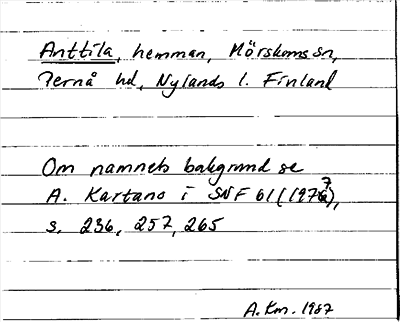 Anttila, hemman, Mörskoms sn,
Pernå hd, Nylands l. Finland
Om namnets bakgrund se
A. Kartano i SNF 61 (1977),
s. 236, 257, 265
A.Km. 1987